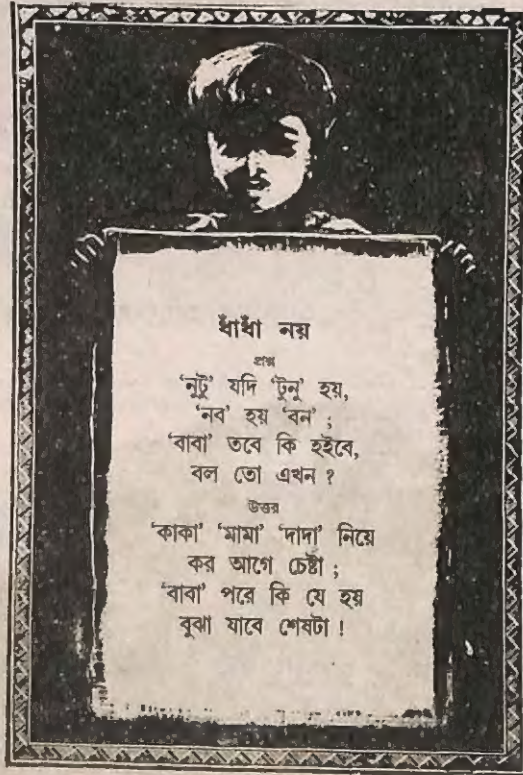 ধাঁধাঁ নয়
প্রশ্ন
‘নুটু’ যদি ‘টুনু’ হয়,
‘নব’ হয় ‘বন’ ;
‘বাবা’ তবে কি হইবে,
বল তো এখন ?
উত্তর
‘কাকা’ ‘মামা’ ‘দাদা’ নিয়ে
কর আগে চেষ্টা ;
‘বাবা’ পরে কি যে হয়
বুঝা যাবে শেষটা !